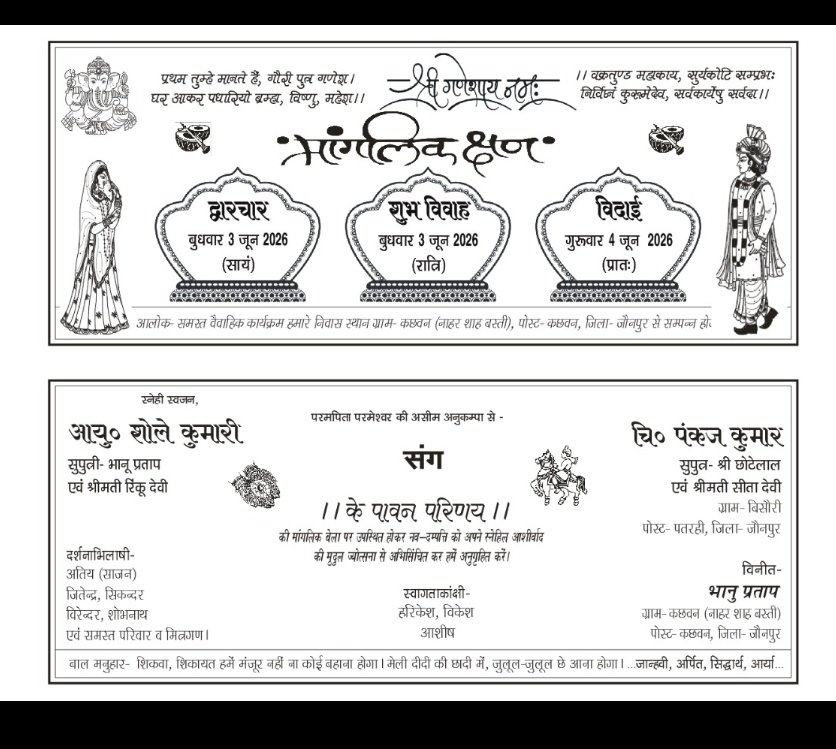 प्रथम तुम्हे मानते हैं, गौरी पुत्र गणेश।
घर आकर पधारियो ब्रम्हा, विष्णु, महेश।।
श्री गणेशाय नमः
।। वक्रतुण्ड महाकाय, सुर्यकोटि सम्प्रभः
निर्विघ्नं कुरूमेदेव, सर्वकार्येषु सर्वदा।।
मांगलिक क्षण
द्वारचार
बुधवार 3 जून 2026
(सायं)
शुभ विवाह
बुधवार 3 जून 2026
(रात्रि)
विदाई
गुरूवार 4 जून 2026
(प्रातः)
आलोक- समस्त वैवाहिक कार्यक्रम हमारे निवास स्थान ग्राम- कछवन (नाहर शाह बस्ती), पोस्ट- कछवन, जिला- जौनपुर से सम्पन्न
स्नेही स्वजन,
परमपिता परमेश्वर की असीम अनुकम्पा से -
आयु० शोले कुमारी
सुपुत्री- भानू प्रताप
एवं श्रीमती रिंकू देवी
संग
चि० पंकज कुमार
सुपुत्र- श्री छोटेलाल
एवं श्रीमती सीता देवी
ग्राम- बिसौरी
पोस्ट- पतरही, जिला- जौनपुर
।। के पावन परिणय ।।
की मांगलिक बेला पर उपस्थित होकर नव-दम्पत्ति को अपने स्नेहित आशीर्वाद
की मृदुल ज्योत्सना से अभिसिंचित कर हमें अनुगृहित करें।
दर्शनाभिलाषी-
अतिय (साजन)
जितेन्द्र, सिकन्दर
विरेन्दर, शोभनाथ
एवं समस्त परिवार व मित्रगण।
स्वागताकांक्षी-
हरिकेश, विकेश
आशीष
विनीत-
भानु प्रताप
ग्राम- कछवन (नाहर शाह बस्ती)
पोस्ट- कछवन, जिला- जौनपुर
बाल मनुहार- शिकवा, शिकायत हमें मंजूर नहीं ना कोई बहाना होगा। मेली दीदी की छादी में, जुलूल-जुलूल छे आना होगा। ...जान्हवी, अर्पित, सिद्धार्थ, आर्या...